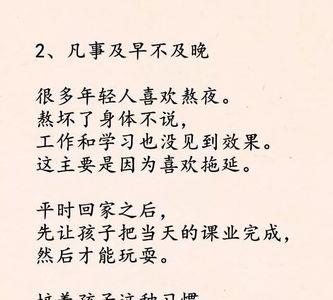 2、凡事及早不及晚
很多年轻人喜欢熬夜。
熬坏了身体不说，
工作和学习也没见到效果。
这主要是因为喜欢拖延。
平时回家之后，
先让孩子把当天的课业完成，
然后才能玩耍。
培养孩子这种习惯